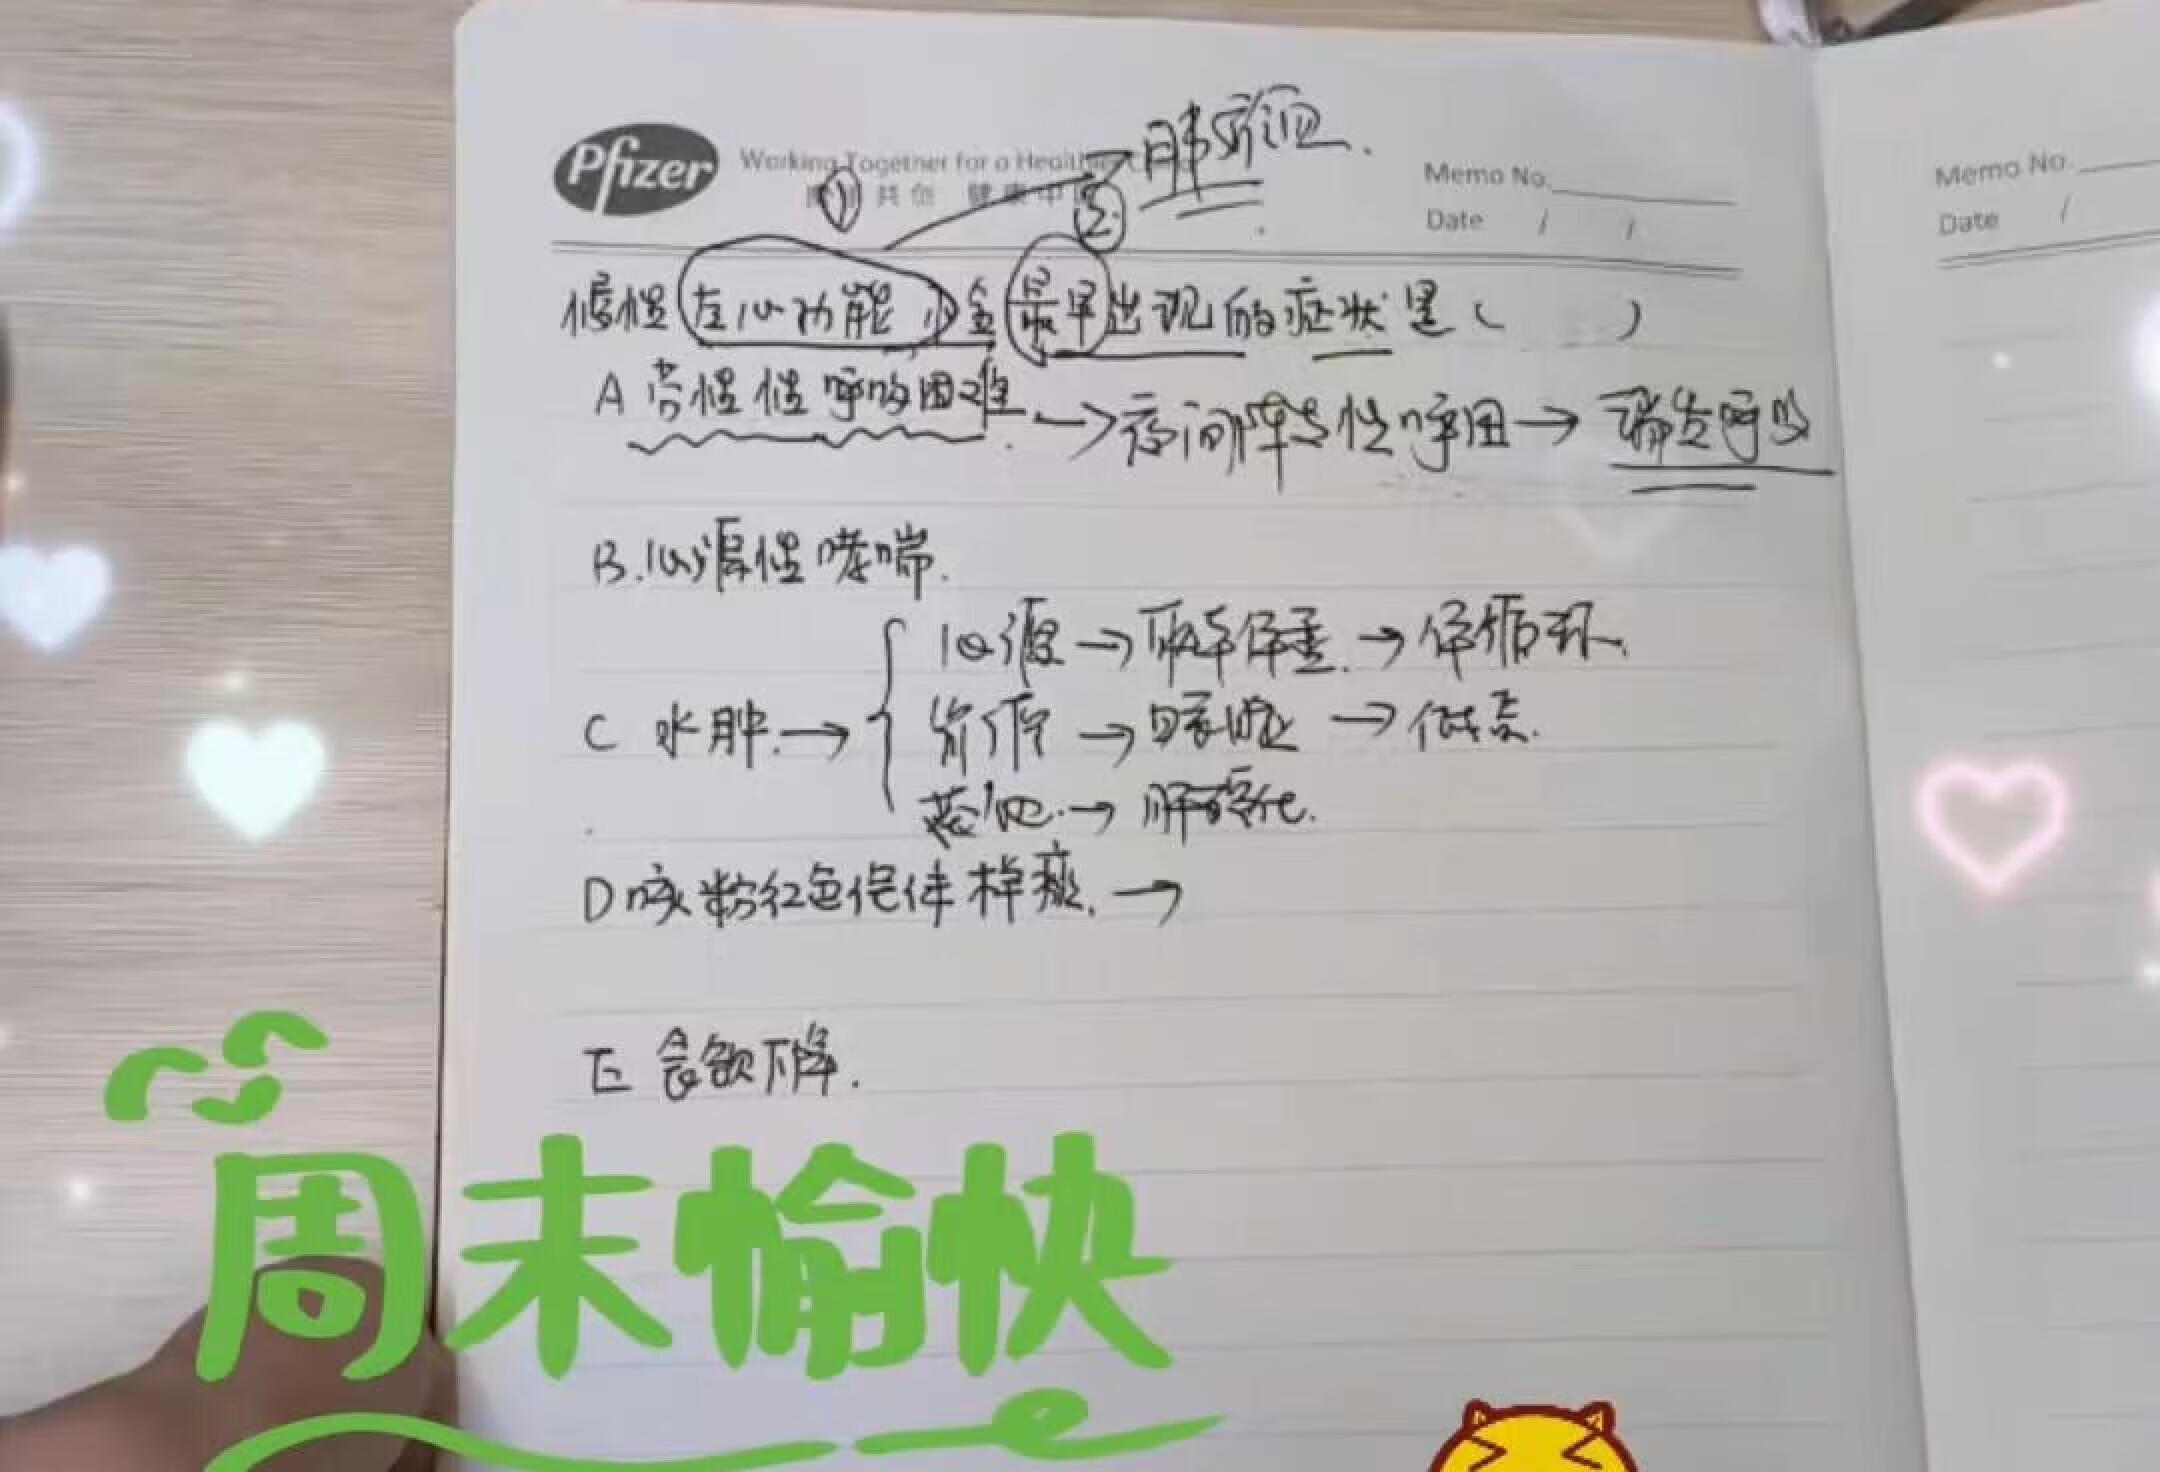 肺瘀血.
Pfizer
Working Together for a Healthier
共创 健康中国
Memo No.
Date / /
① ②
慢性左心功能不全最早出现的症状是( )
A 劳慢性呼吸困难 → 夜间阵发性呼困 → 端坐呼吸
B.心源性哮喘.
C 水肿. →
心源 → 下垂 → 体循环.
→ 眼睑 → 低蛋.
→ 肝硬化.
D 咳粉红色泡沫样痰. →
E 食欲下降.
周末愉快
Memo No.
Date /